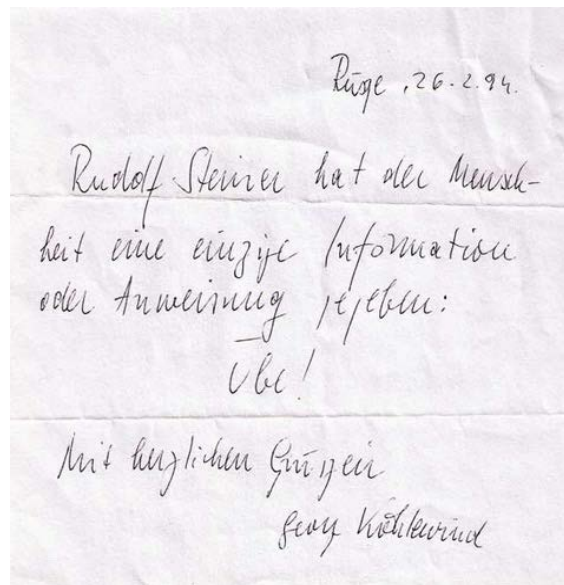 26.2.94.
Rudolf Steiner hat der Mensch-
heit eine einzige Information
oder Anweisung gegeben:
Übe!
Mit herzlichen Grüßen
Georg Kühlewind